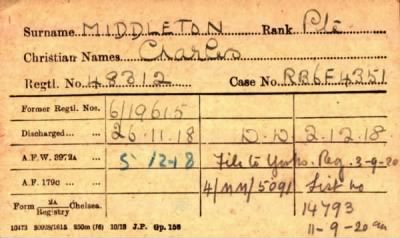 Surname MIDDLETON Rank Pte
Christian Names Charles
Regtl. No. 48312 Case No. RB6E4351
Former Regtl. Nos. 6/19615
Discharged 26.11.18 D.D 2.12.18
A.F.W. 3972A 5 12 18 File to Yorks. Reg. 3-9-20
A.F. 179c 4/NM/5091 List no
Form 2A Registry Chelsea. 14793
11-9-20
10473 J.P. Gp. 156